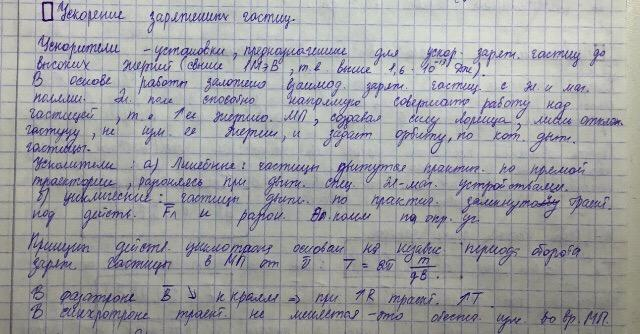 Ускорение заряженных частиц.
Ускорители – установки, предназначенные для ускор. заряж. частиц до
высоких энергий (свыше 1 МэВ, т.е. выше 1,6 · 10⁻¹³ Дж).
В основе работы заложено взаимод. заряж. частиц с эл и маг.
полями. Эл. поле способно напрямую совершать работу над
частицей, т.е. ↑ ее энергию. МП, создавая силу Лоренца, лишь отклон.
частицу, не изм. ее энергии, и задает орбиту, по кот. движ.
частицы.
Ускорители: а) Линейные: частицы движутся практич. по прямой
траектории, разгоняясь при движ. спец. эл-маг. устройствами.
б) циклические: частицы движ. по практич. замкнутой траект.
под действ. Fл и разгон. Эл полем по опр. дуг.
Принцип действ. циклотрона основан на независ. периода оборота
заряж. частицы в МП от v̄ : T = 2π m/qB.
В фазатроне B̄ ↘ к краям ⇒ при ↑R траект. ↑T.
В синхротроне траект. не меняется – это обеспеч. изм. во вр. МП.